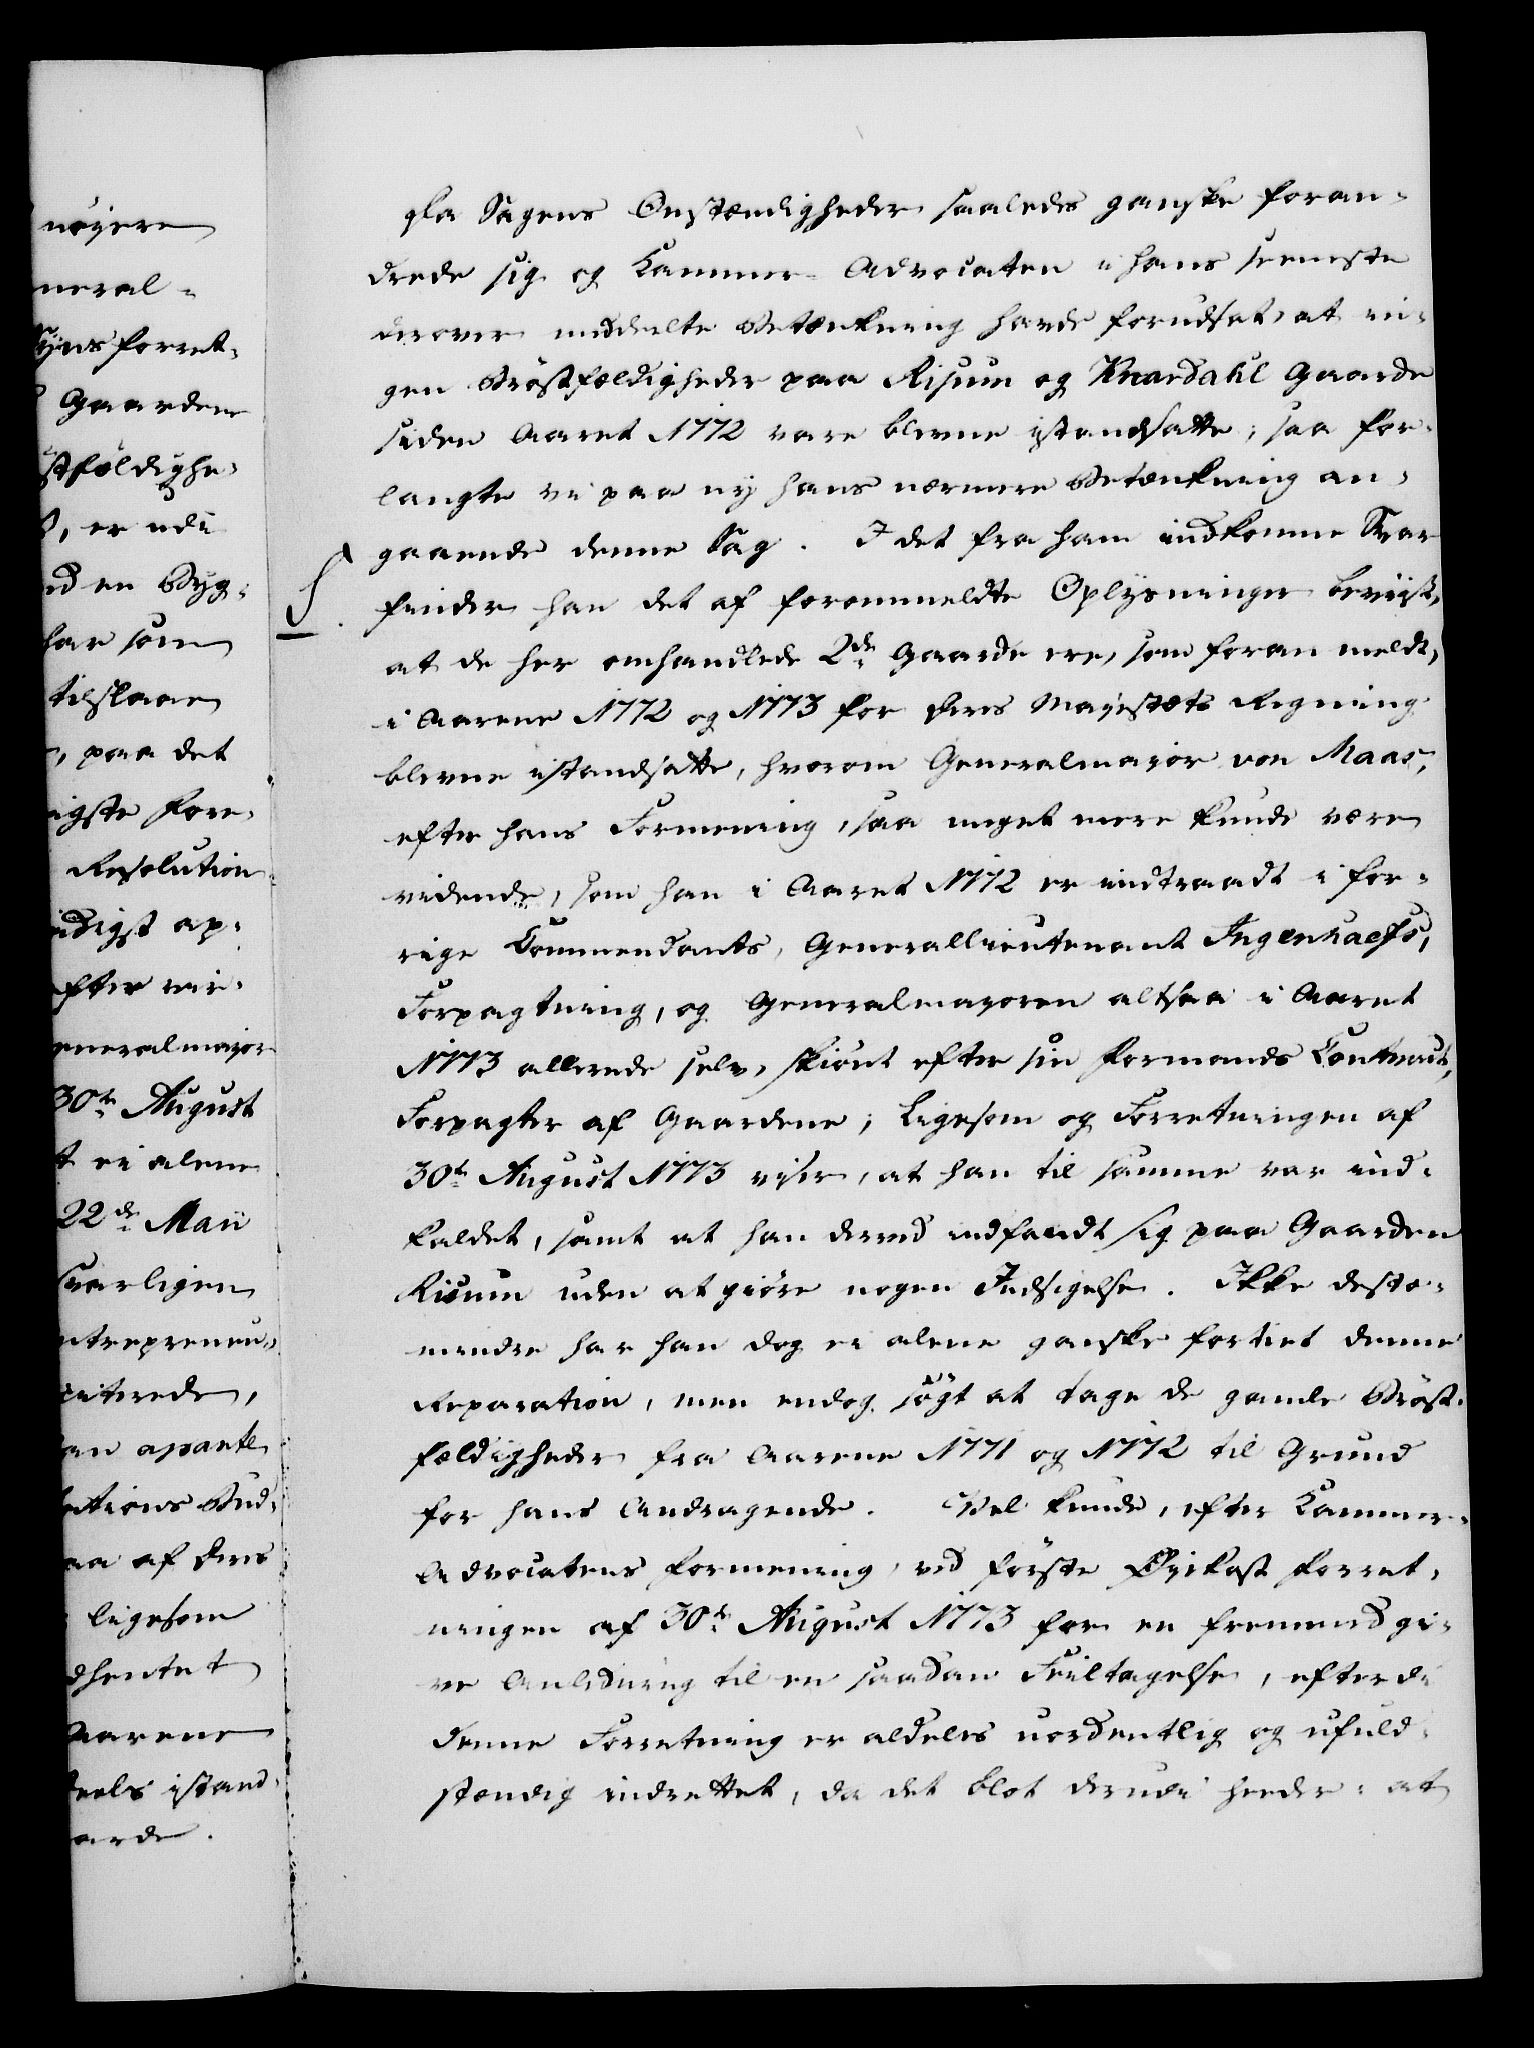 nöyere
neral-
Syns forret-
Gaardene
stfældighe-
, er udi
ed en Byg-
har som
tilslaaen
, paa det
igste fore-
Resolution
adigst ap-
efter vir-
eneralmajor
30te August
t ei alene
22de Maii
svarligen
ntrepreneu-
piterede,
an aparte
ations Bud-
aa af Deres
ligesom
dhentet
Aarene
deels istand-
aarde.
Da Sagens Omstændigheder saaledes ganske foran-
drede sig og Kammer-Advocaten i hans seeneste
derover meddeelte Betænkning havde forudsat, at in-
gen Bröstfældigheder paa Risum og Knardahl Gaarde
siden Aaret 1772 vare blevne istandsatte; saa for-
langte vi paa ny hans nærmere Betænkning an-
gaaende denne Sag. I det fra ham indkomne Svar
finder han det af forommeldte Oplysninger beviist,
at de her omhandlede 2de Gaarde ere, som foran meldt,
i Aarene 1772 og 1773 for Deres Majestæts Regning
blevne istandsatte, hvorom Generalmajor von Maas,
efter hans Formening, saa meget mere kunde være
vidende, som han i Aaret 1772 er indtraadt i for-
rige Commendants, Generallieutenant Ingenhaefs,
Forpagtning, og Generalmajoren altsaa i Aaret
1773 allerede selv, skiönt efter sin Formands Contract,
Forpagter af Gaardene; ligesom og Forretningen af
30te August 1773 viser, at han til samme var ind-
kaldet, samt at han derved indfandt sig paa Gaarden
Risum uden at giöre nogen Indsigelse. Ikke desto-
mindre har han dog ei alene ganske fortiet denne
Reparation, men endog sögt at tage de gamle Bröst-
fældigheder fra Aarene 1771 og 1772 til Grund
for hans Andragende. Vel kunde, efter Kammer-
Advocatens Formening, ved förste Öyekast Forret-
ningen af 30te August 1773 for en fremmed gi-
ve Anledning til en saadan Feiltagelse, efterdi
denne Forretning er aldeles uordentlig og ufuld-
stændig indrettet, da det blot derudi heeder: at